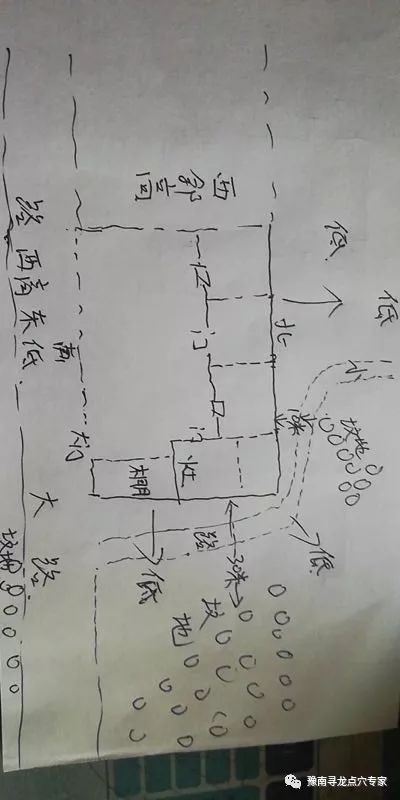 西邻高
低
低
北
小
坟地
深
门
门
灶
棚
大门
南
路 西高东低
大路
路
30米
低
低
坟地
坟地
豫南寻龙点穴专家